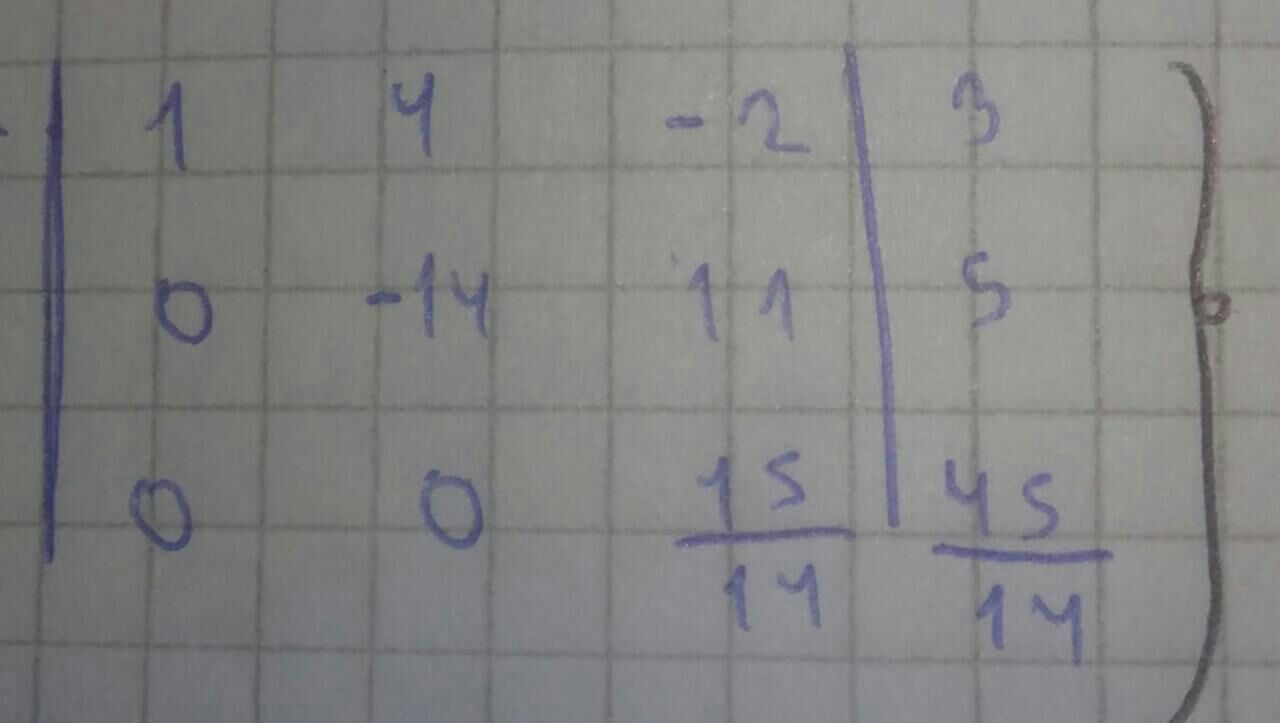 1 4 -2 | 3
0 -14 11 | 5
0 0 15/14 | 45/14